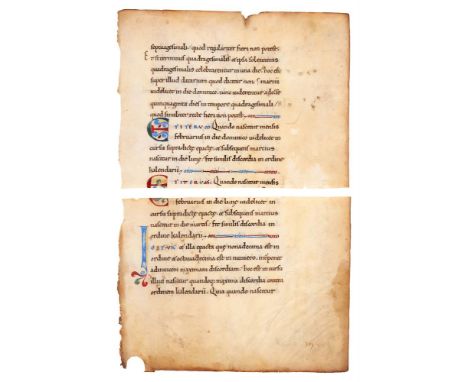 septuagesimali / quod regulariter fieri non potest
E t terminus quadragesimalis et ipsa solennitas
quadragesimalis celebrarentur in una die / hoc est
super illud datarum quod dicitur non. marcii
videlicet in die dominico. unde viderentur adesse
quinquaginta dies in tempore quadragesimali /
quod similiter recte fieri non potest
ITERUM Quando nascitur mensis
februarius in die dominico videlicet in
cursu supradicte epacte. et subsequens marcius
nascitur in die lune / fit similis discordia in
kalendarii
ITERUM Quando nascitur mensis
februarius in die lune videlicet in
cursu supradicte epacte. et subsequens marcius
nascitur in die martis / fit similis discordia in
ordine kalendarii
et illa epacta que nonadecima est in
ordine et octavadecima est in numero.
maximam discordiam / hoc est in cursu
illius nascitur quandoque nimia discordia contra
ordinem kalendarii. Quia quando nascitur